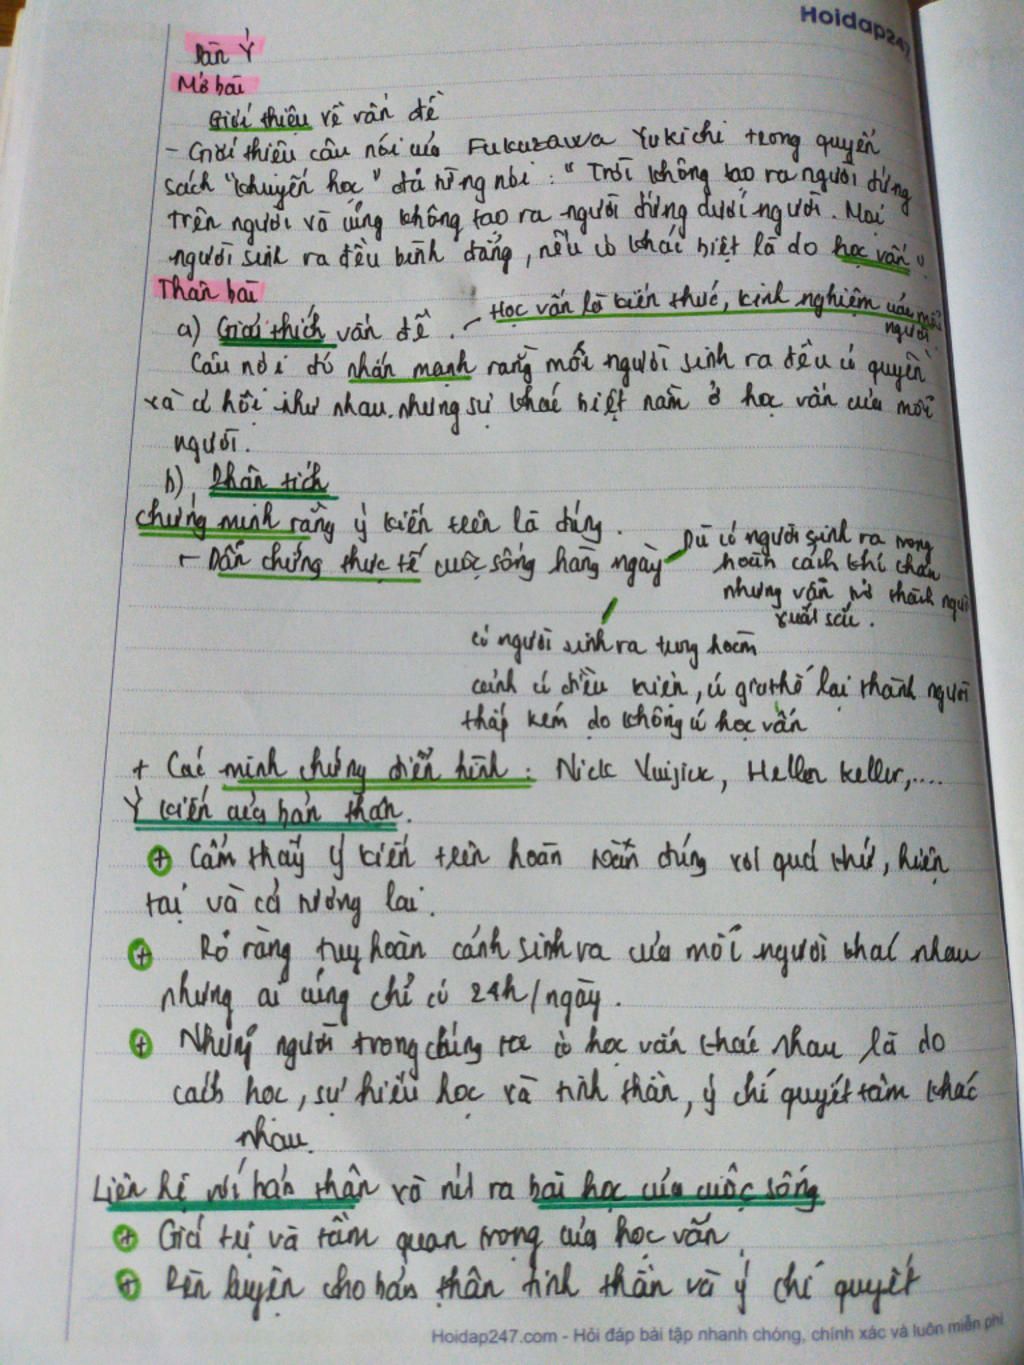 Hoidap247
Dàn Ý
Mở bài
Giới thiệu về vấn đề
- Giới thiệu câu nói của Fukuzawa Yukichi trong quyển
sách "khuyến học" đã từng nói : " Trời không tạo ra người đứng
trên người và cũng không tạo ra người đứng dưới người. Mọi
người sinh ra đều bình đẳng, nếu có khác biệt là do học vấn "
Thân bài
a) Giải thích vấn đề . - Học vấn là kiến thức, kinh nghiệm của mỗi
người.
Câu nói đó nhấn mạnh rằng mỗi người sinh ra đều có quyền
và cơ hội như nhau. nhưng sự khác biệt nằm ở học vấn của mỗi
người.
b) Phân tích
chứng minh rằng ý kiến trên là đúng .
- Dẫn chứng thực tế cuộc sống hằng ngày
Dù có người sinh ra trong
hoàn cảnh khó khăn
nhưng vẫn trở thành người
xuất sắc .
có người sinh ra trong hoàn
cảnh có điều kiện, có gia thế lại thành người
thấp kém do không có học vấn
+ Các minh chứng điển hình : Nick Vuijick, Hellen Keller,....
Ý kiến của bản thân.
+ Cảm thấy ý kiến trên hoàn toàn đúng với quá khứ, hiện
tại và cả tương lai.
+ Rõ ràng tuy hoàn cảnh sinh ra của mỗi người khác nhau
nhưng ai cũng chỉ có 24h/ngày .
+ Những người trong chúng ta có học vấn khác nhau là do
cách học, sự hiếu học và tinh thần, ý chí quyết tâm khác
nhau.
Liên hệ với bản thân và rút ra bài học của cuộc sống
+ Giá trị và tầm quan trọng của học vấn
+ Rèn luyện cho bản thân tinh thần và ý chí quyết
Hoidap247.com - Hỏi đáp bài tập nhanh chóng, chính xác và luôn miễn phí